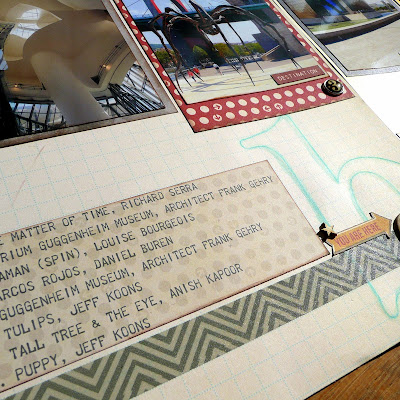 DESTINATION
E MATTER OF TIME, RICHARD SERRA
RIUM GUGGENHEIM MUSEUM, ARCHITECT FRANK GEHRY
AMAN (SPIN), LOUISE BOURGEOIS
ARCOS ROJOS, DANIEL BUREN
GUGGENHEIM MUSEUM, ARCHITECT FRANK GEHRY
TULIPS, JEFF KOONS
TALL TREE & THE EYE, ANISH KAPOOR
. PUPPY, JEFF KOONS
YOU ARE HERE
h